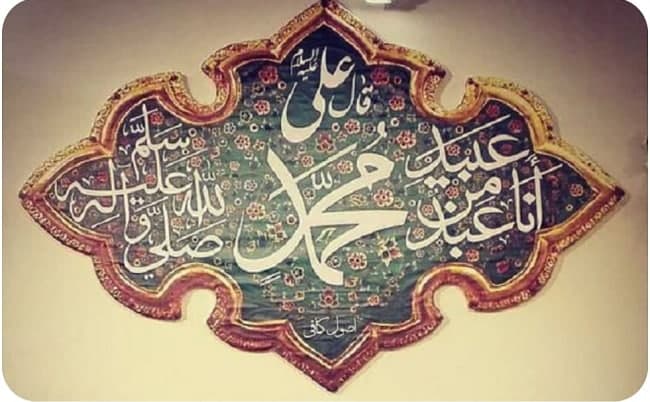 قال علی علیه السلام
أنا عبد من عبید محمد صلی الله علیه و آله وسلم
اصول کافی